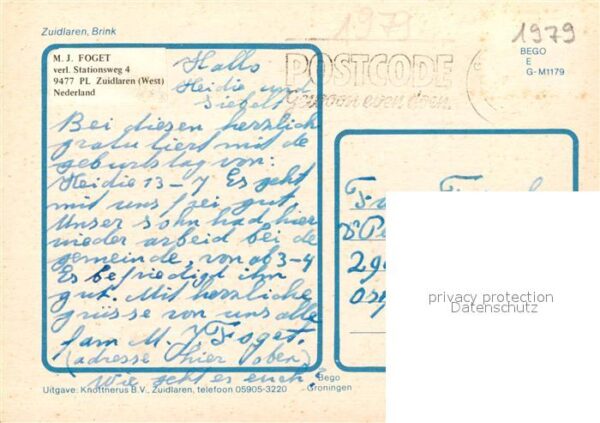 Zuidlaren, Brink
1979
1979
BEGO
E
G-M1179
M. J. FOGET
verl. Stationsweg 4
9477 PL Zuidlaren (West)
Nederland
POSTCODE
gewoon even doen.
Hallo
Heidie und
Bei diesen herzlich
gratuliert mit de
geburtstag von:
Heidie 13-7 Es geht
mit uns frei gut
Unser sohn had hier
wieder arbeid bei de
gemeinde, von ab 3-4
Es befriedigd ihm
gut. Mit herzliche
grüsse von uns alle
fam M. J Foget.
(adresse hier oben)
Wie geht es euch?
Uitgave: Knottnerus B.V., Zuidlaren, telefoon 05905-3220
Bego
Groningen
privacy protection
Datenschutz